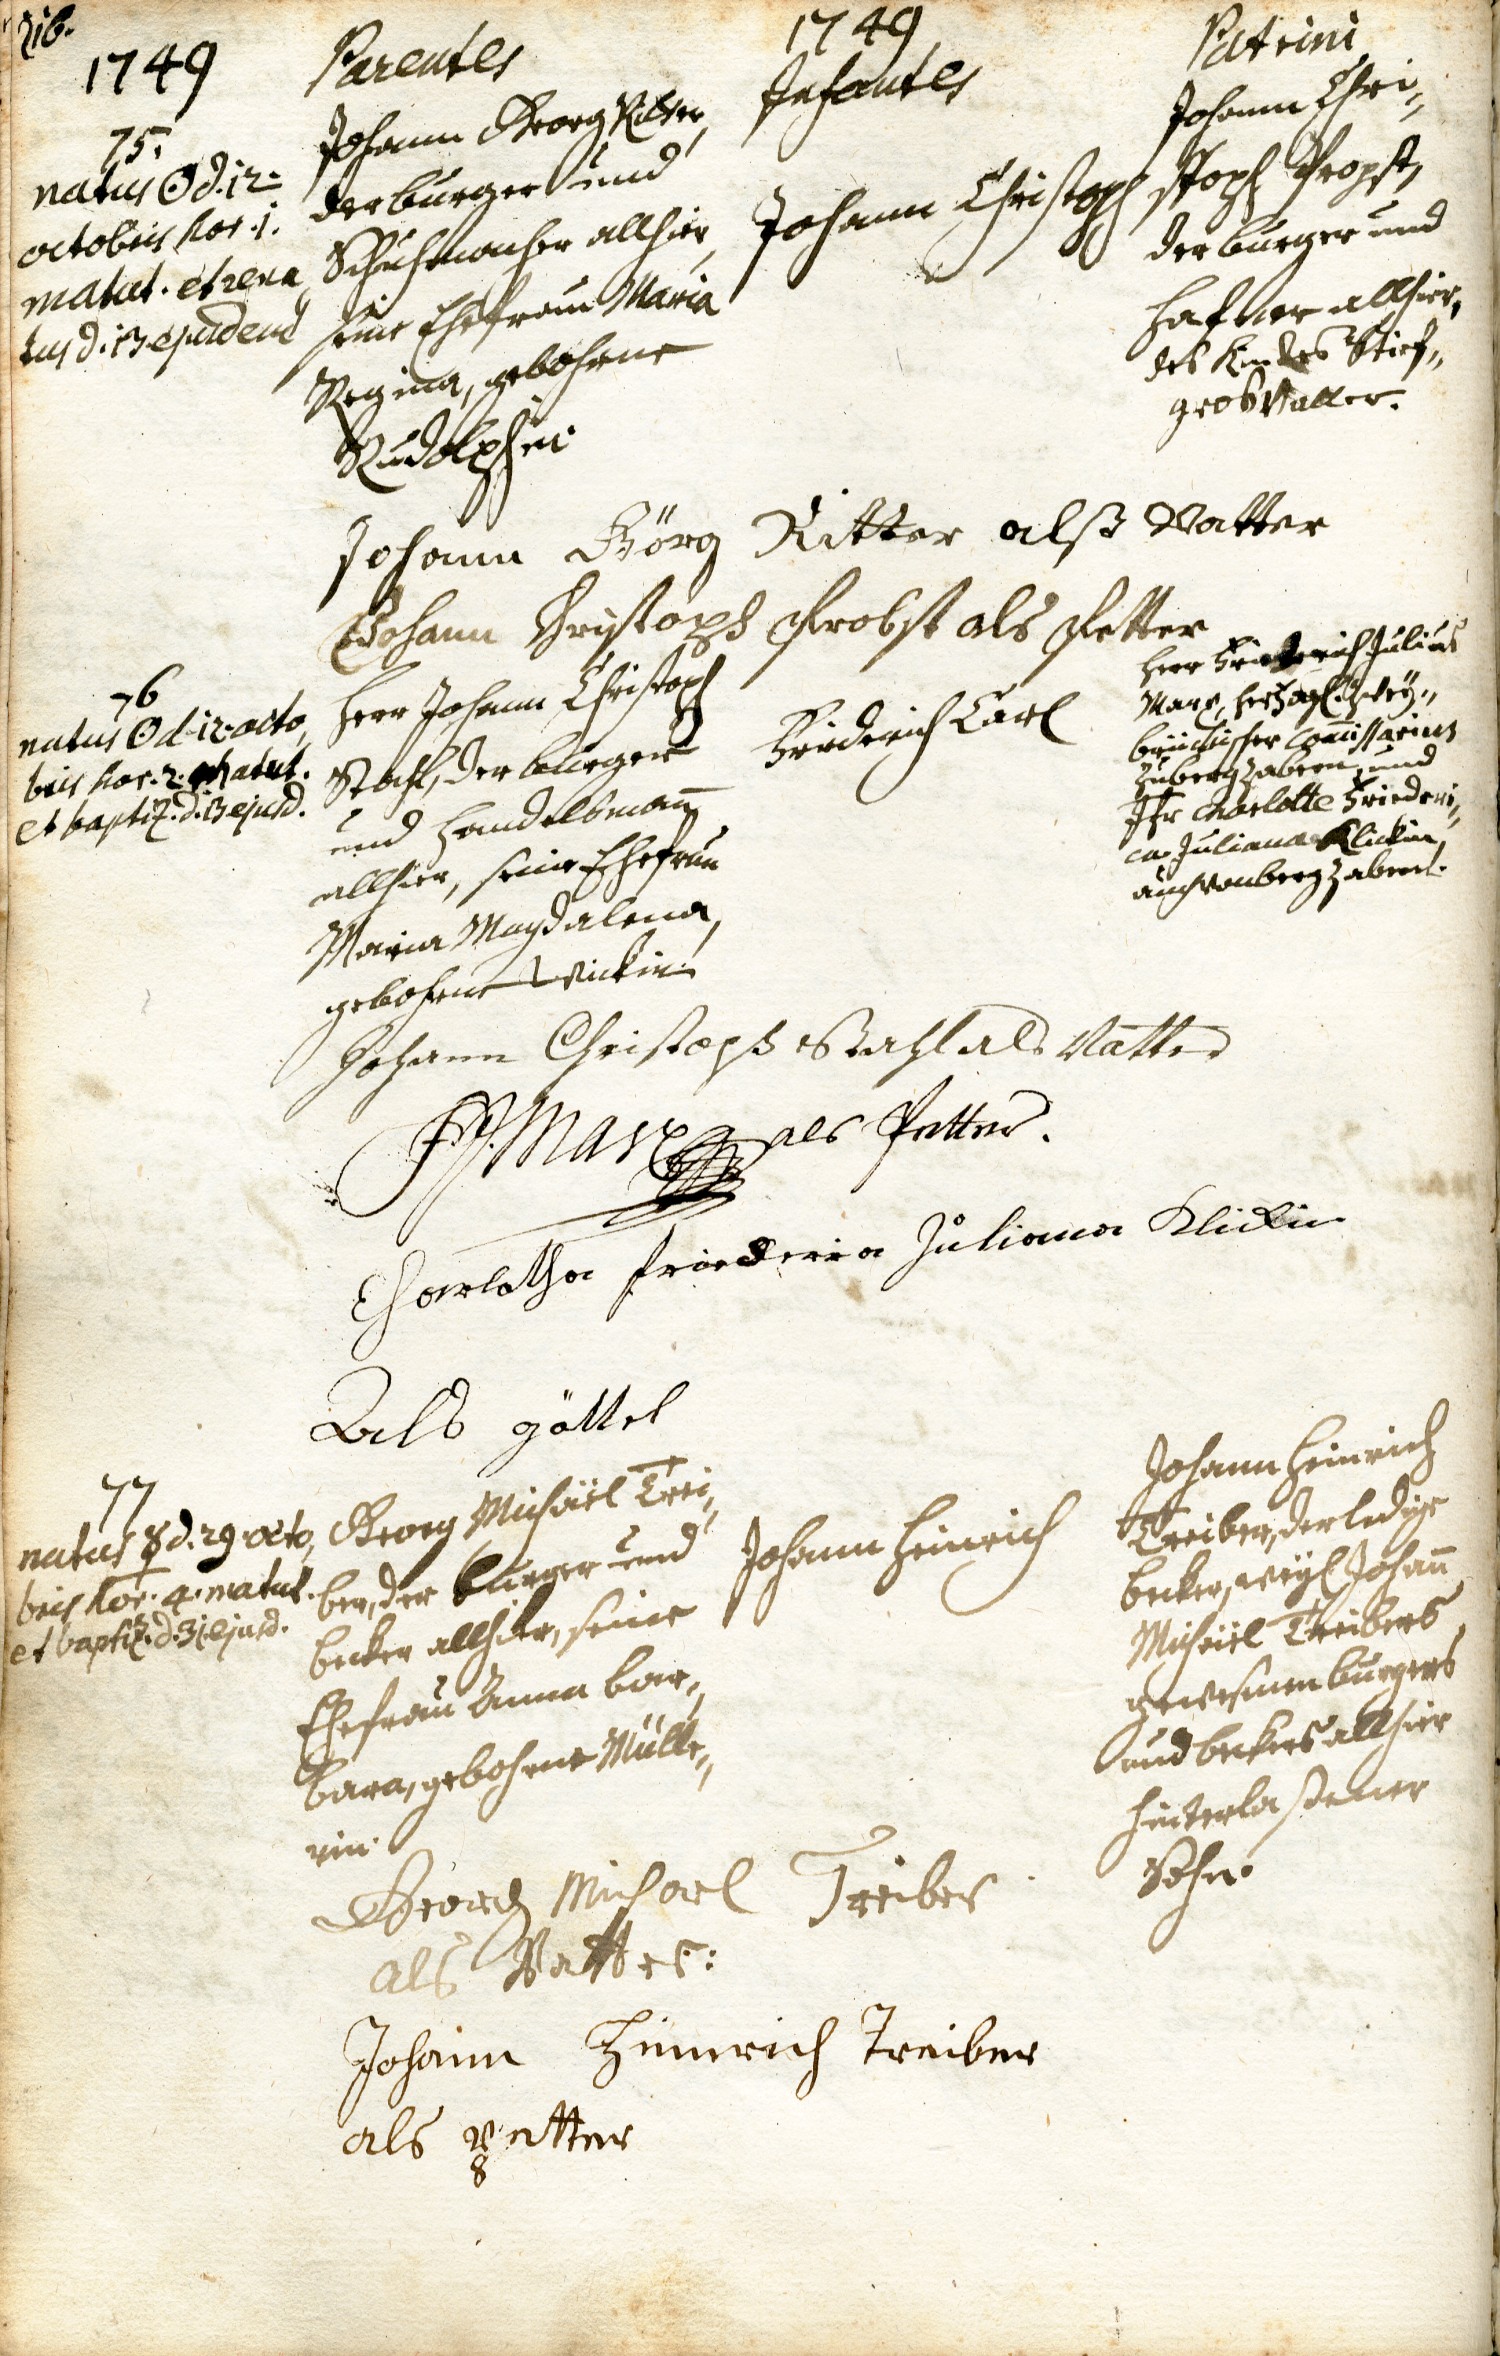 216.
1749
Parentes
1749
Infantes
Patrini
75.
natus ☉ d. 12.
octobris hor. 1.
matut. et rena
tus d. 13 ejusdem
Johann Georg Ritter,
der burger und
Schuhmacher allhier,
seine Ehefrau Maria
Regina, gebohrne
Rudolphin
Johann Christoph
Johann Chri„
stoph Propst,
der burger und
hafner allhier,
des Kindes Stief„
grosVatter.
Johann Görg Ritter alß Vatter
Johann Christoph Probst als Petter
76
natus ☉ d. 12. octo,
bris hor. 2. matut.
et baptiz. d. 13 ejusd.
Herr Johann Christoph
Stahl, der burger
und handelsmañ
allhier, seine Ehefrau
Maria Magdalena,
gebohrne Wickin.
Friderich Carl
Herr Friederich Julius
Marx, Herzogl. Zwey„
brückischer Com̃issarius
zu bergzabern, und
Jfr Charlotte Friederi„
ca Juliana Klickin,
auch von bergzabern.
Johann Christoph Stahl als Vatter
FJ. Marx als Petter.
Charlotha friederica Juliana Klickin
Als göttel
77
natus ☿ d. 29. octo,
bris hor. 4. matut.
et baptiz. d. 31. ejusd.
Georg Michäel Trei„
ber, der burger und
becker allhier, seine
Ehefrau Anna bar„
bara, gebohrne Mülle„
rin.
Johann Heinrich
Johann Heinrich
Treiber, der ledige
becker, weyl. Johañ
Michäel Treibers
gewesenen burgers
und beckers allhier
hinterlaßener
Sohn.
Georg Michael Treiber
als Vatter:
Johann Heinrich Treiber
als petter